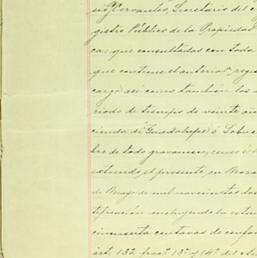 Cervantes, Secretario del
gistro Público de la Propiedad
ca: que consultadas con toda
que contiene el anterior
cargo, así como tambien los
riodo de tiempo de veinte añ
cienda de Guadalupe ó Sobre
bre de todo gravamen, como
extiendo el presente, en Mor
de Mayo de mil novecientos do
incluyendo la
cincuenta centavos de confor
art. 132 frac. 13ª y 14ª del